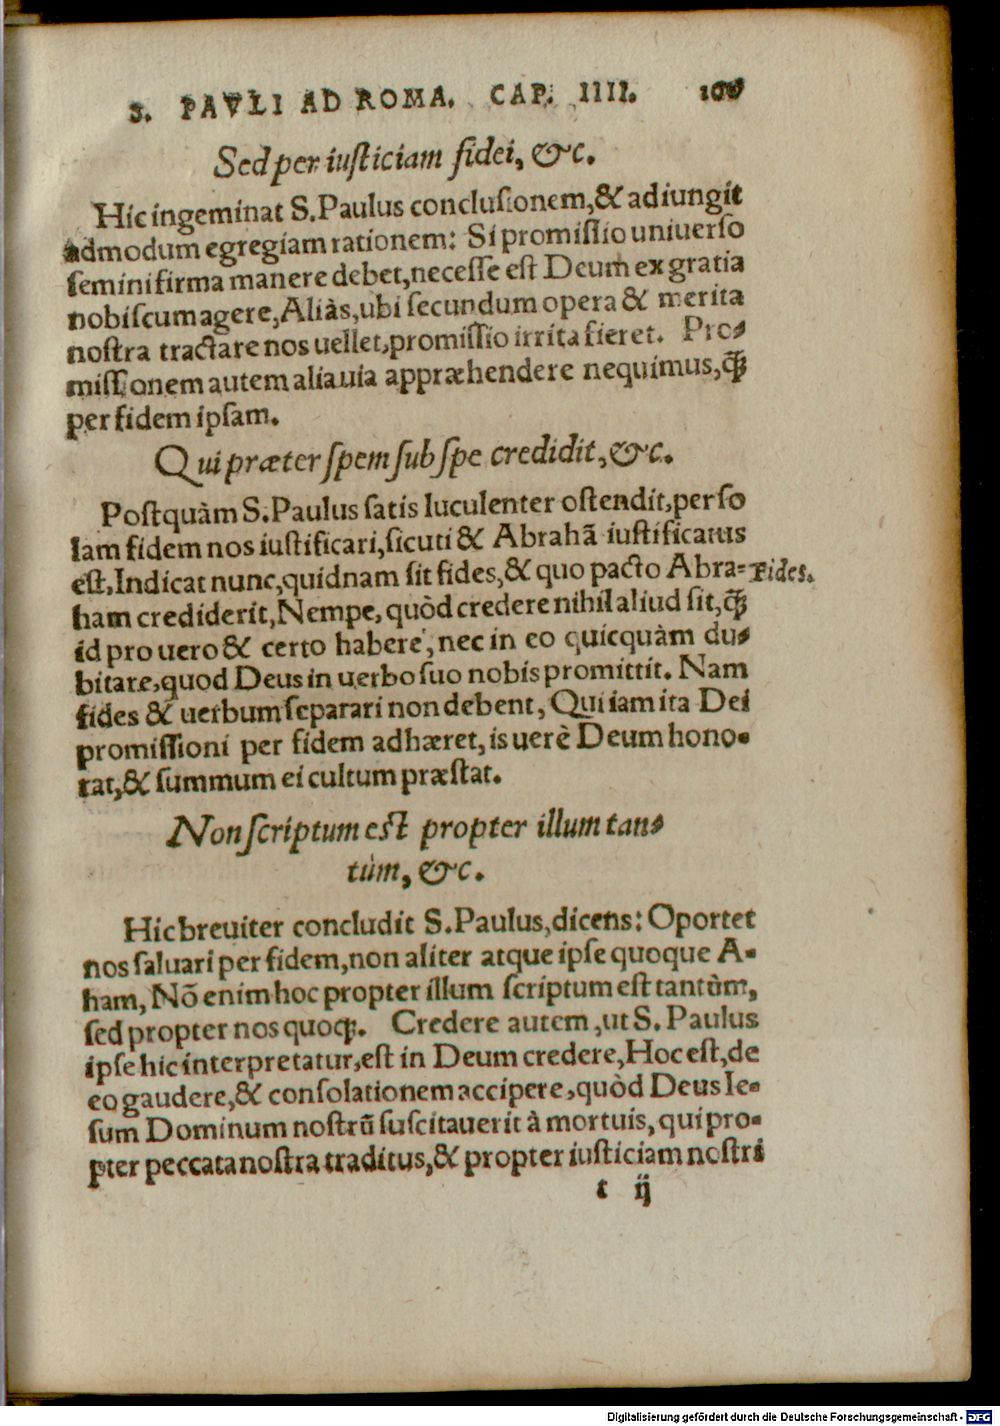 S. PAVLI AD ROMA. CAP. IIII.
Sed per iusticiam fidei, &c.
Hic ingeminat S. Paulus conclusionem, & adiungit
admodum egregiam rationem: Si promissio uniuerso
semini firma manere debet, necesse est Deum ex gratia
nobiscum agere, Aliàs, ubi secundum opera & merita
nostra tractare nos uellet, promissio irrita fieret. Pro-
missionem autem alia uia appræhendere nequimus, q̃ꝫ
per fidem ipsam.
Qui præter spem sub spe credidit, &c.
Postquàm S. Paulus satis luculenter ostendit, per so
lam fidem nos iustificari, sicuti & Abrahã iustificatus
est, Indicat nunc, quidnam sit fides, & quo pacto Abra-
Fides.
ham crediderit, Nempe, quòd credere nihil aliud sit, q̃ꝫ
id pro uero & certo habere, nec in eo quicquàm du-
bitare, quod Deus in uerbo suo nobis promittit. Nam
fides & uerbum separari non debent, Qui iam ita Dei
promissioni per fidem adhæret, is uerè Deum hono-
rat, & summum ei cultum præstat.
Non scriptum est propter illum tan-
tùm, &c.
Hic breuiter concludit S. Paulus, dicens: Oportet
nos saluari per fidem, non aliter atque ipse quoque A-
ham, Nõ enim hoc propter illum scriptum est tantùm,
sed propter nos quoqꝫ. Credere autem, ut S. Paulus
ipse hic interpretatur, est in Deum credere, Hoc est, de
eo gaudere, & consolationem accipere, quòd Deus Ie-
sum Dominum nostrũ suscitauerit à mortuis, qui pro-
pter peccata nostra traditus, & propter iusticiam nostri
t ij
Digitalisierung gefördert durch die Deutsche Forschungsgemeinschaft - DFG